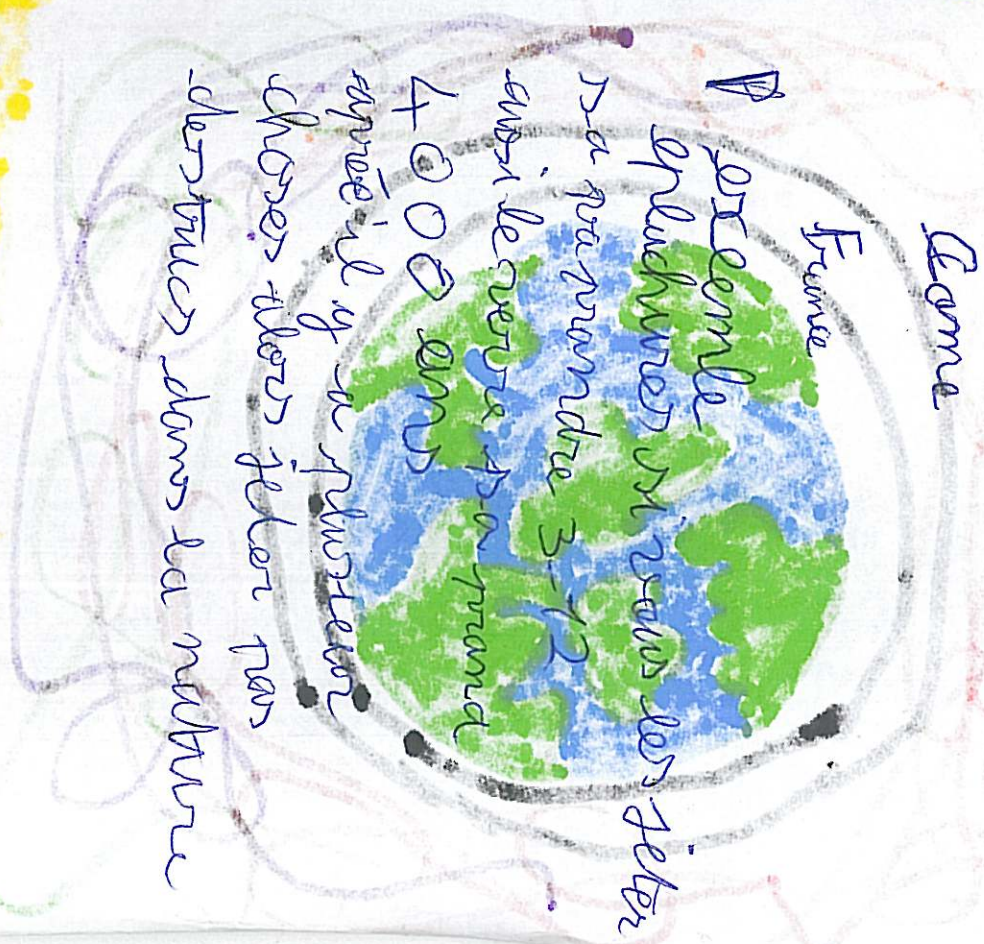 Come
France
exemple
epluchures si vous les jeter
sa va prandre 3-12
ausi le verre sa prand
4000 ans
aprée il y a plusieur
choses alors jeter pas
des trucs dans la nature